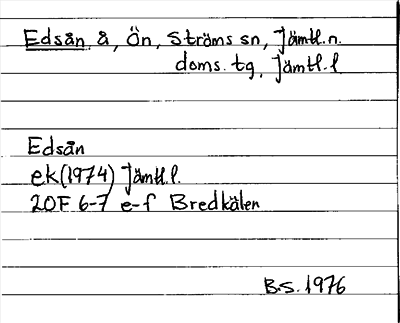 Edsån, å, Ön, Ströms sn, Jämtl. n.
doms. tg, Jämtl. l
Edsån
ek(1974) Jämtl. l.
20F 6-7 e-f Bredkälen
B.S. 1976